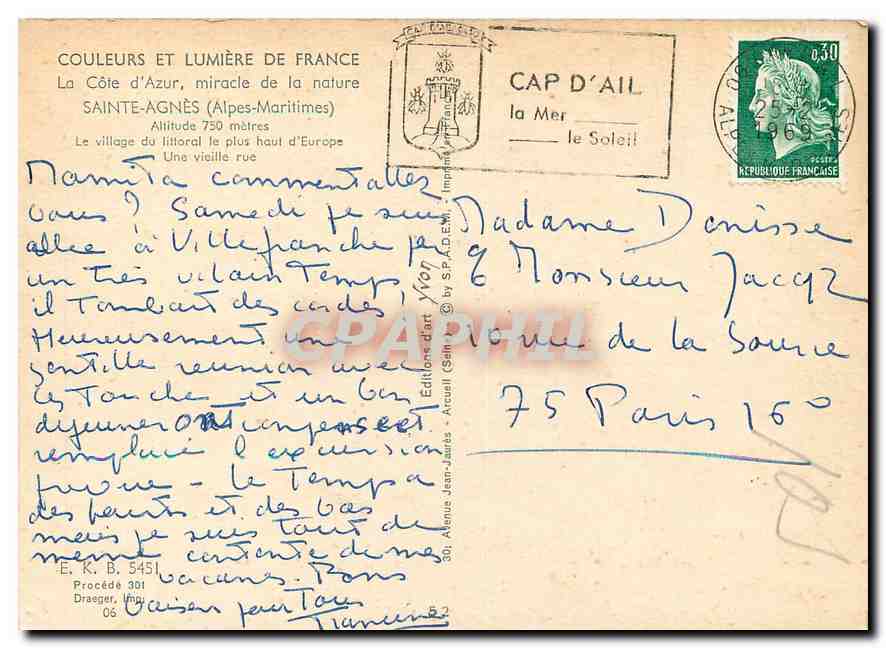 COULEURS ET LUMIÈRE DE FRANCE
La Côte d'Azur, miracle de la nature
SAINTE-AGNÈS (Alpes-Maritimes)
Altitude 750 mètres
Le village du littoral le plus haut d'Europe
Une vieille rue
CAP D'AIL
la Mer
le Soleil
0,30
25-2
1969
POSTES
REPUBLIQUE FRANÇAISE
Mamita comment allez
vous? Samedi je suis
allée à Villefranche par
un très vilain Temps,
il Tombait des cordes,
Heureusement une
gentille reunion avec
les Touches et un bon
dejeuner ont
remplacé l'excursion
prevue - le Temps a
des hauts et des bas
mais je suis tout de
meme contente de mes
vacances. Bons
baisers pour Tous
Francine
E. K. B. 5451
Procédé 301
Draeger, Imp.
06
52
30, Avenue Jean-Jaurès - Arcueil (Seine)
Éditions d'art Yvon
© by S.P.A.D.E.M. - Imprimé en France
Madame Denisse
& Monsieur Jacqz
10 rue de la Source
75 Paris 16°
CPAPHIL